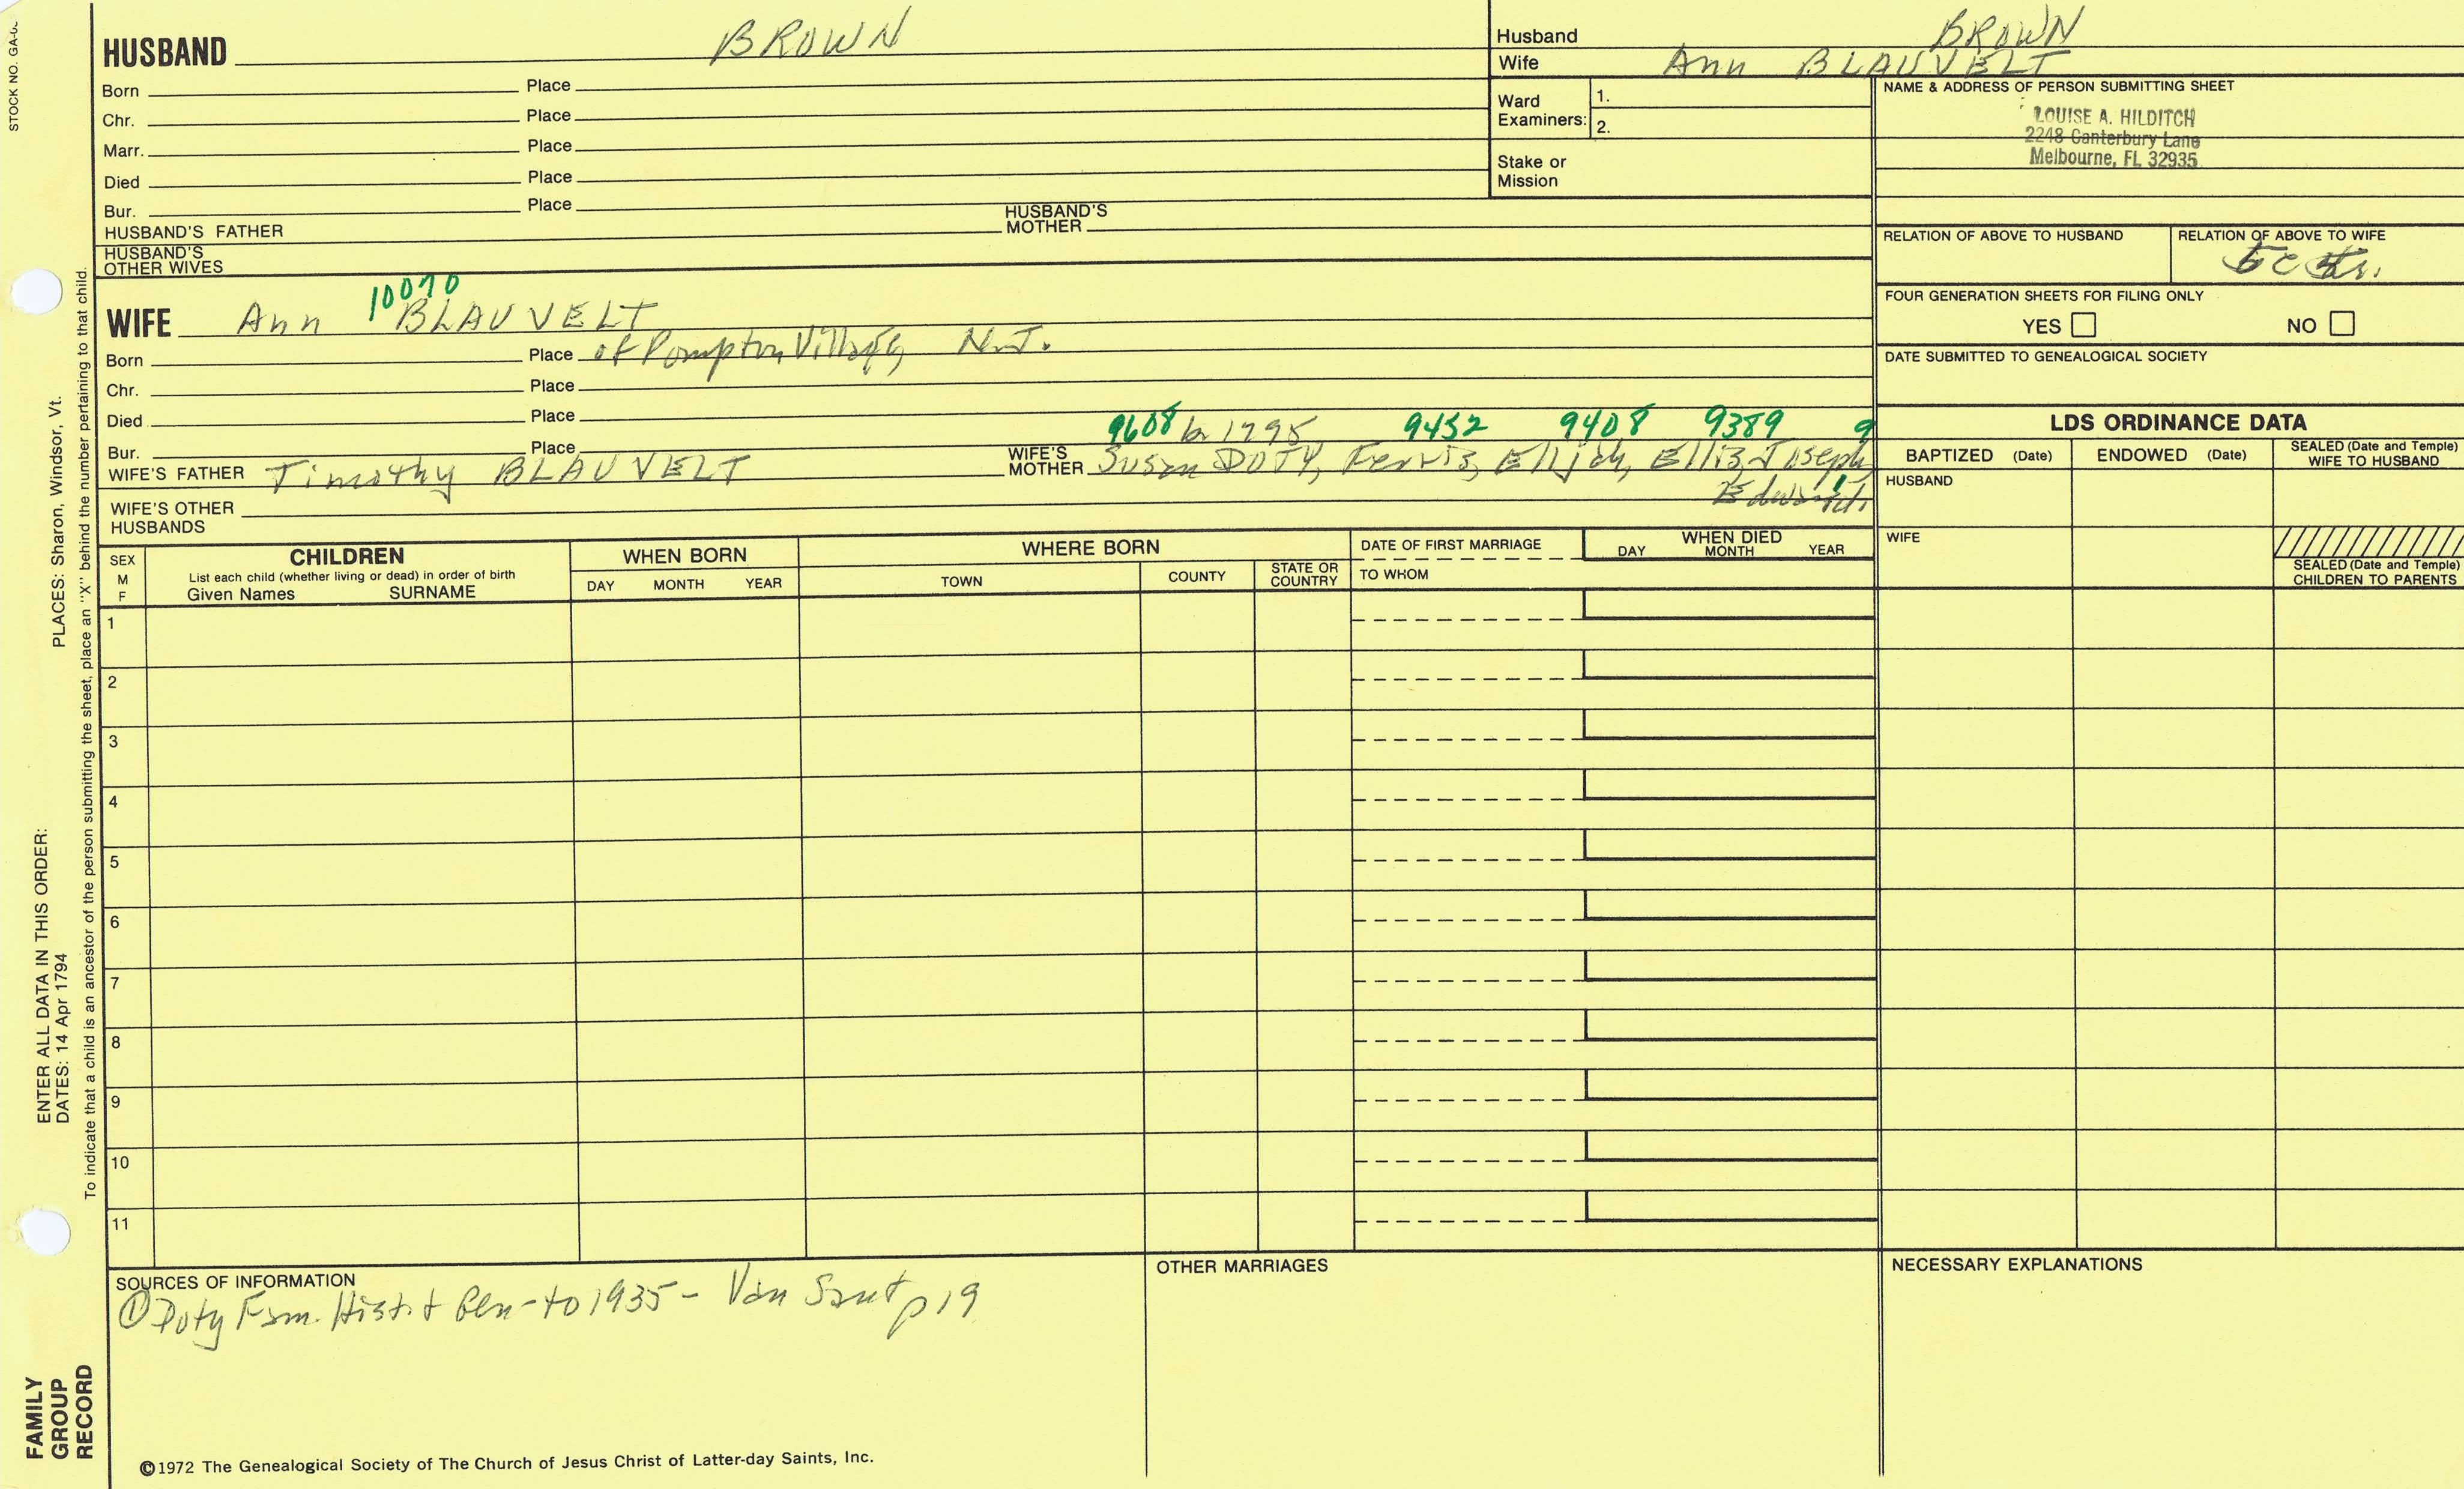 STOCK NO. GA-
HUSBAND BROWN
Born Place
Chr. Place
Marr. Place
Died Place
Bur. Place
HUSBAND'S FATHER HUSBAND'S MOTHER
HUSBAND'S OTHER WIVES
Husband BROWN
Wife Ann BLAUVELT
Ward Examiners: 1.
2.
Stake or Mission
NAME & ADDRESS OF PERSON SUBMITTING SHEET
LOUISE A. HILDITCH
2248 Canterbury Lane
Melbourne, FL 32935
RELATION OF ABOVE TO HUSBAND
RELATION OF ABOVE TO WIFE
FOUR GENERATION SHEETS FOR FILING ONLY
YES NO
DATE SUBMITTED TO GENEALOGICAL SOCIETY
10070
WIFE Ann BLAUVELT
Born Place of Pompton Village, N.J.
Chr. Place
Died Place
9608 b 1795 9452 9408 9389 9
Bur. Place
WIFE'S FATHER Timothy BLAUVELT WIFE'S MOTHER Susan DOTY, Ferris, Elijah, Ellis, Joseph
Edward
WIFE'S OTHER HUSBANDS
LDS ORDINANCE DATA
BAPTIZED (Date) ENDOWED (Date) SEALED (Date and Temple) WIFE TO HUSBAND
HUSBAND
WIFE
SEALED (Date and Temple) CHILDREN TO PARENTS
SEX M F
CHILDREN
List each child (whether living or dead) in order of birth
Given Names SURNAME
WHEN BORN
DAY MONTH YEAR
WHERE BORN
TOWN COUNTY STATE OR COUNTRY
DATE OF FIRST MARRIAGE
TO WHOM
WHEN DIED
DAY MONTH YEAR
1
2
3
4
5
6
7
8
9
10
11
SOURCES OF INFORMATION
① Doty Fam. Hist. & Gen - to 1935 - Van Sant p 19
OTHER MARRIAGES
NECESSARY EXPLANATIONS
©1972 The Genealogical Society of The Church of Jesus Christ of Latter-day Saints, Inc.
FAMILY GROUP RECORD
ENTER ALL DATA IN THIS ORDER:
DATES: 14 Apr 1794
PLACES: Sharon, Windsor, Vt.
To indicate that a child is an ancestor of the person submitting the sheet, place an "X" behind the number pertaining to that child.